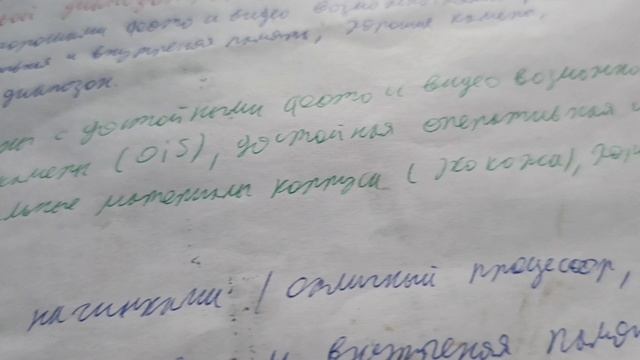 вой диапазон
хорошими фото и видео возможно
и внутреняя память, хорошая камера,
диапазон.
ны с достойными фото и видео возможно
камеры (OiS), достойная оперативная и
льные материалы корпуса (экокожа), хор
начинками / отличный процессор,
и внутреняя памя